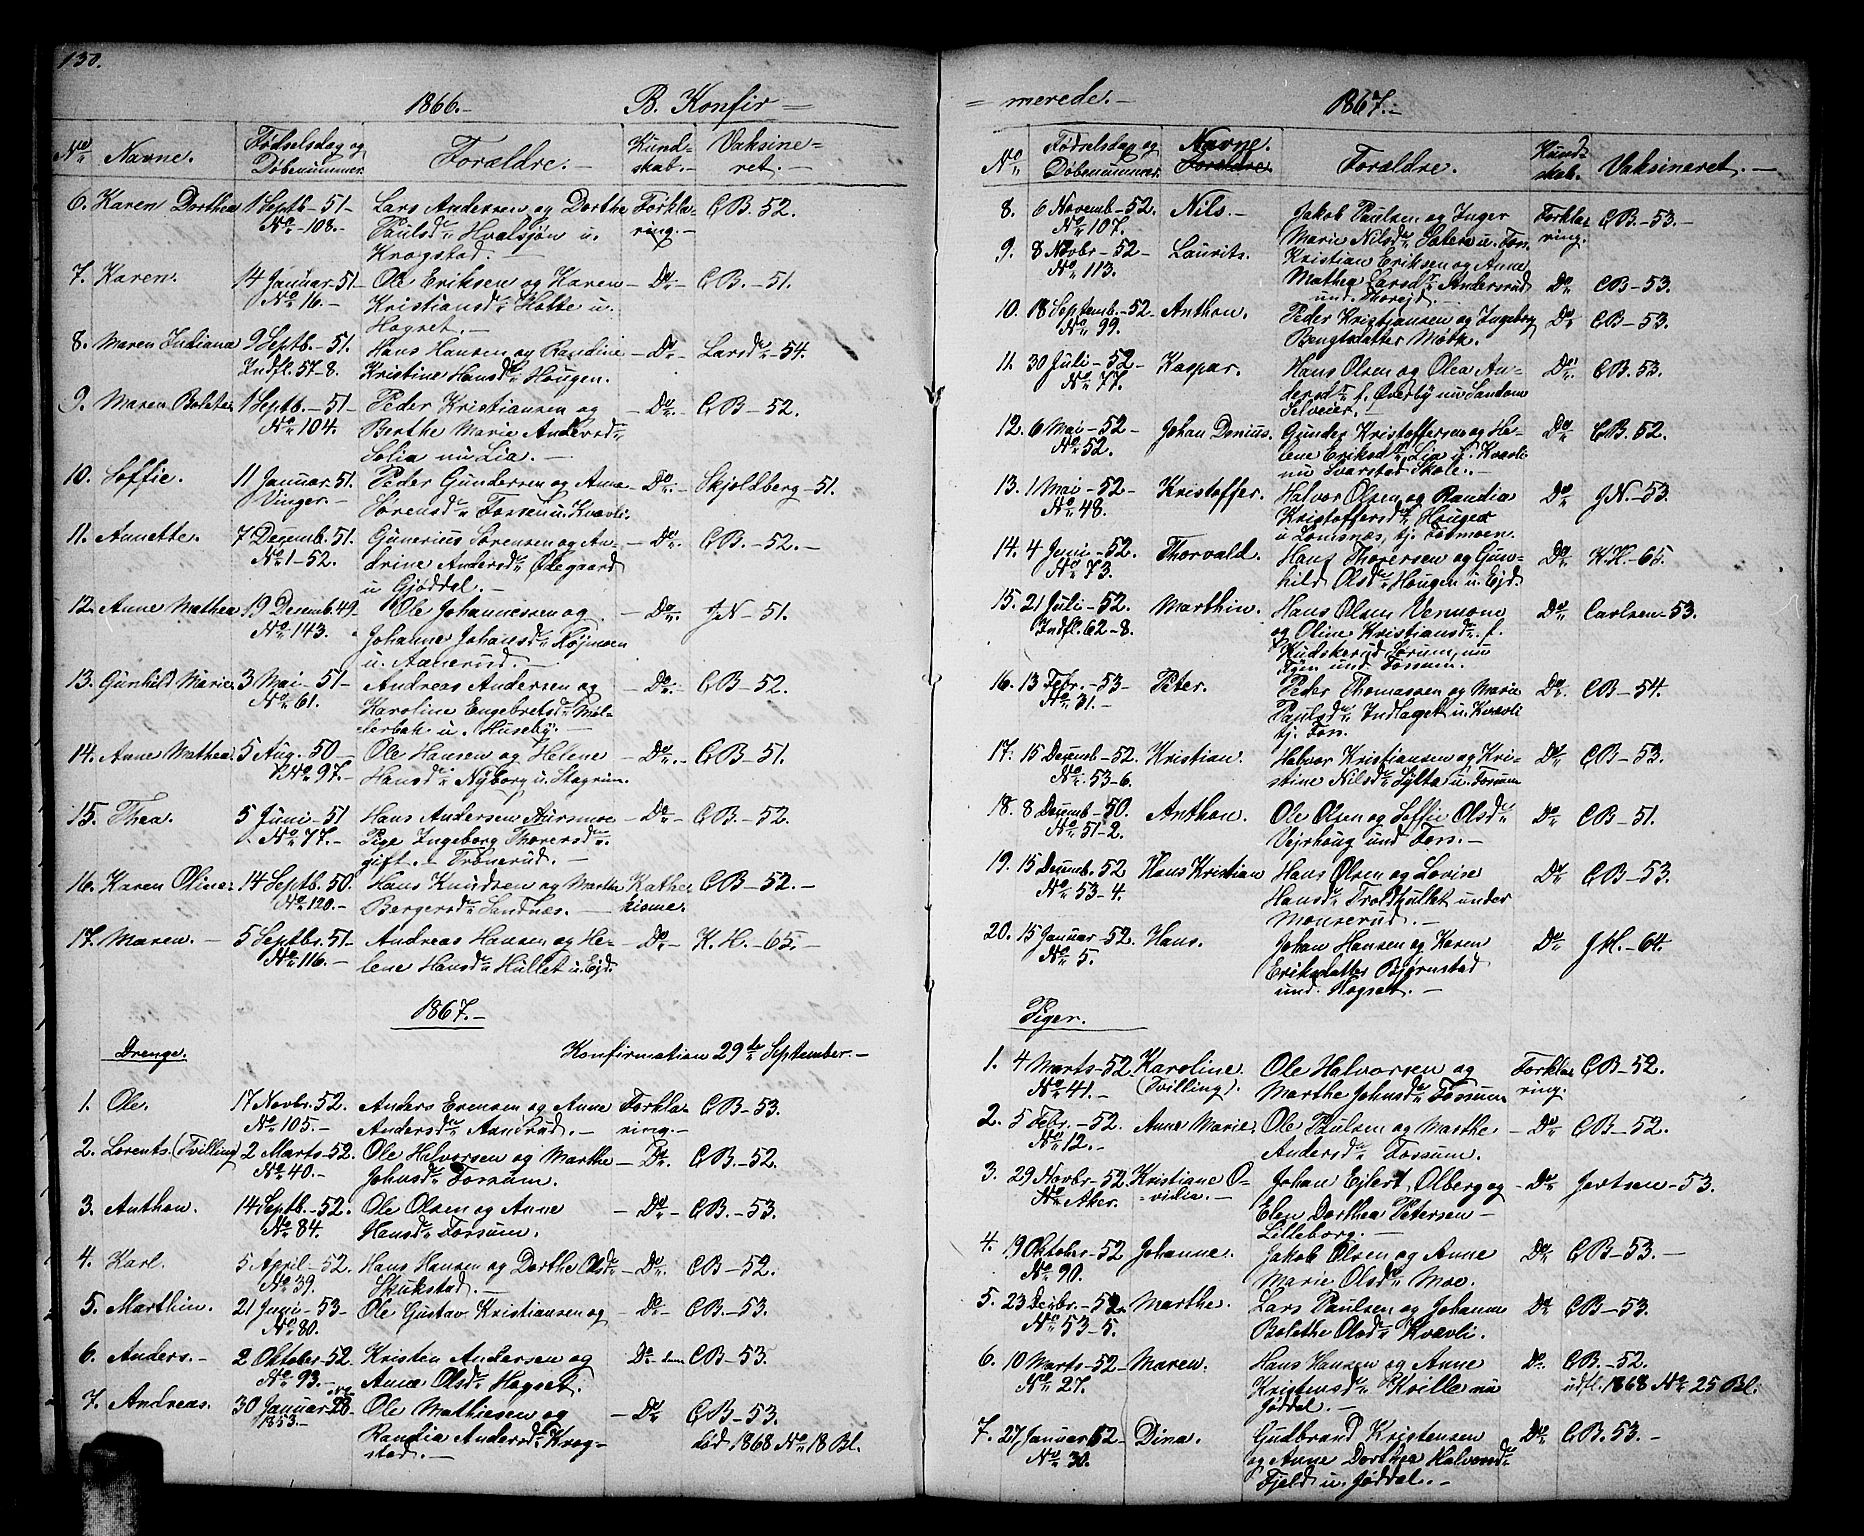 130.
1866.- B. Konfir=
No Navne. Fødselsdag og Døbenummer. Forældre.- Kund=skab.- Vaksine=ret.-
6. Karen Dorthea 1 Septb-51- Lars Andersen og Dorthe Forkla- CB. 52.
No 108.- Paulsd. Hvalsjøn u. ring.-
Krogstad.-
7. Karen. 14 Januar 51- Ole Eriksen og Karen -Do- CB.- 51.
No 16.- Kristiansd. Hotte u.
Hogset.-
8. Maren Juliana 9 Septb.-51. Hans Hansen og Randine -Do- Larsd.-54.
Indfl. 57-8. Kristine Hansd. Hougen.
9. Maren Bolete. 1 Septb.-51- Peder Kristiansen og -Do- CB-52.
No 104. Berthe Marie Andersd.
Solia nu Lia.-
10. Soffie. 11 Januar 51. Peder Gundersen og Anne -Do- Skjoldberg-51.
Vinger.- Sørensd. Fossen u. Kvævli.
11. Annette. 7 Decemb. 51. Gunerius Sørensen og An- -Do- CB.-52.-
No 1-52. drine Andersd. Ødegaard
u Gjøddal.-
12. Anne Mathea 19 Desemb. 49. Ole Johannesen og -Do- JN-51.
No 143. Johanne Johansd. Højmoen
u. Aanerud.-
13. Gunhild Marie. 3 Mai-51- Andreas Andersen og -Do- CB-52.
No 61. Karoline Engebretsd. Møl-
lerbak u. Huseby.-
14. Anne Mathea. 5 Aug. 50- Ole Hansen og Helene -Do.- CB-51.
No 97.- Hansd. Nyborg u. Slagrin.
15. Thea. 5 Juni-51 Hans Andersen Aursmoe -Do- CB-52.
No 77.- Pige Ingeborg Thoresd.
gift.- Tronerud.-
16. Karen Oline. 14 Septb. 50. Hans Knudsen og Marthe Kathe CB-52.-
No 120.- Bergersd. Sandnæs.- kisme.
17. Maren.- 5 Septbr. 51- Andreas Hansen og He- Do- K.H.-65.-
No 116.- lene Hansd. Hullet u. Ejd.
1867.-
Drenge. Konfirmation 29de September.-
1. Ole. 17 Novbr. 52. Anders Evensen og Anne Forkla- CB-53.
No 105.- Andersd. Aanerud.- ring.-
2. Lorents (Tvilling) 2 Marts-52. Ole Halvorsen og Marthe -Do. CB.-52.
No 40.- Johnsd. Fossum.
3. Anthon. 14 Septb.-52. Ole Olsen og Anne -Do- CB.-53.
No 84. Hansd. Fossum.
4. Karl. 5 April-52. Hans Hansen og Dorthe Olsd. -Do. CB-52.
No 39. Skukstad.-
5. Marthin. 21 Juni-53- Ole Gustav Kristiansen og Do- CB-53.
No 80.
6. Anders.- 2 Oktober-52. Kristen Andersen og Do- CB-53.
No 93.- Anne Olsd. Hogset.
7. Andreas. 30 Januar 28. Ole Mathiesen og -Do- CB-53.
1853.- Randia Andersd. Krog- død 1868 No 18 Bl.
stad.-
=merede.- 1867.-
No Fødselsdag og Døbenummer. Navne. Forældre. Forældre. Kund=skab. Vaksineret.-
8. 6 Novemb-52. Nils.- Jakob Paulsen og Inger Forkla CB-53.-
No 107. Marie Nilsd. Sateren u. Fos. ring.
9. 8 Novbr-52- Laurits. Kristian Eriksen og Anne
No 113. Mathea Larsd. Andersrud Do. CB-53.
und. Thorejd.-
10. 18 Septemb.-52- Anthon. Peder Kristiansen og Ingeborg Do. CB-53.
No 99. Bengtsdatter Mørk.
11. 30 Juli-52- Kaspar. Hans Olsen og Olea An- Do. CB. 53.
No 77. dersd. f. Overby nu Sandom
Selveier.
12. 6 Mai-52- Johan Denius. Gunder Kristoffersen og He- Do. CB. 52.
No 52. lene Eriksd. Lia f. Kvævli
nu Svarstad Skole.-
13. 1 Mai-52- Kristoffer. Halvor Olsen og Randia Do JN.-53.
No 48. Kristoffersd. Hougen
u Lomsnæs, tj. Fosmoen.
14. 4 Juni-52. Thorvald. Hans Thorersen og Gun- Do. K.K.-65.
No 73. hild Olsd. Hougen u. Ejd.
15. 21 Juli-52. Marthin. Hans Olsen Vennom Do. Carlsen-53.
Indfl. 62-8. og Oline Kristiansd. f.
Kudskerud Sørum, nu
und. Fossum.
16. 13 Febr.-53- Peter. Peder Thomassen og Marie Do. CB-54.
No 31.- Paulsd. Indlaget u. Kvævli
tj. Fos.
17. 15 Decemb-52. Kristian. Halvor Kristiansen og Kri- Do CB-53.
No 53-6. stine Nilsd. Lytta u. Fossum
18. 8 Decemb-50. Anthon. Ole Olsen og Soffie Olsd. Do CB-51.
No 51-2. Vejrhoug und Fos.-
19. 15 Decemb. 52 Hans Kristian Hans Olsen og Lovise Do CB-53.
No 53-4. Hansd. Troldhullet under
Monserud.-
20. 15 Januar-52. Hans. Johan Hansen og Karen Do JH.-64.
No 5. Eriksdatter Bjørnstad
und. Hogset.-
Piger.
1. 4 Marts-52. Karoline Ole Halvorsen og Forkla CB-52.
No 41.- (Tvilling). Marthe Johnsd. Fossum ring.
2. 5 Febr.-52. Anne Marie. Ole Paulsen og Marthe -Do CB-52.
No 12.- Andersd. Fossum.
3. 29 Novbr-52. Kristiane O- Johan Ejlert Olberg og -Do Jertsen-53.
No Aker. =vidia.- Elen Dorthea Petersen-
Lilleborg.-
4. 19 Oktober-52 Johanne. Jakob Olsen og Anne Do. CB-53.-
No 90. Marie Olsd. Moe.
5. 23 Decbr.-52- Marthe. Lars Paulsen og Johanne Do. CB-53.
No 53-5. Bolethe Olsd. Kvævli.
6. 10 Marts-52- Maren. Hans Hansen og Anne Do. CB.-52.
No 27. Kristensd. Kville nu udfl. 1868 No 25 Bl.
Jøddal.-
7. 27 Januar 52- Dina. Gudbrand Kristensen Do. CB. 53.-
No 30. og Anne Dorthea Halvorsd.
Fjeld u. Jøddal.-